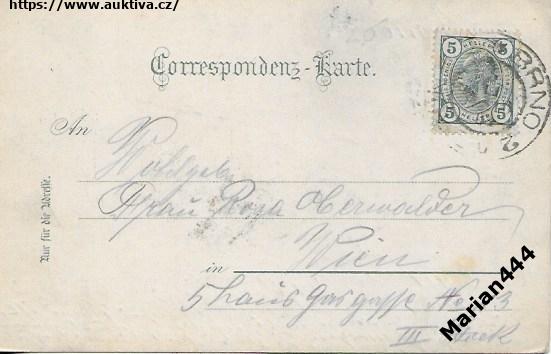 https://www.auktiva.cz/
Correspondenz-Karte.
5 5
5 5
BRNO
2
An
Wohlgeb.
Frau Rosa Oberwalder
Wien
in
5haus Gasgasse No 3
III Stock
Nur für die Adresse.
Marian444